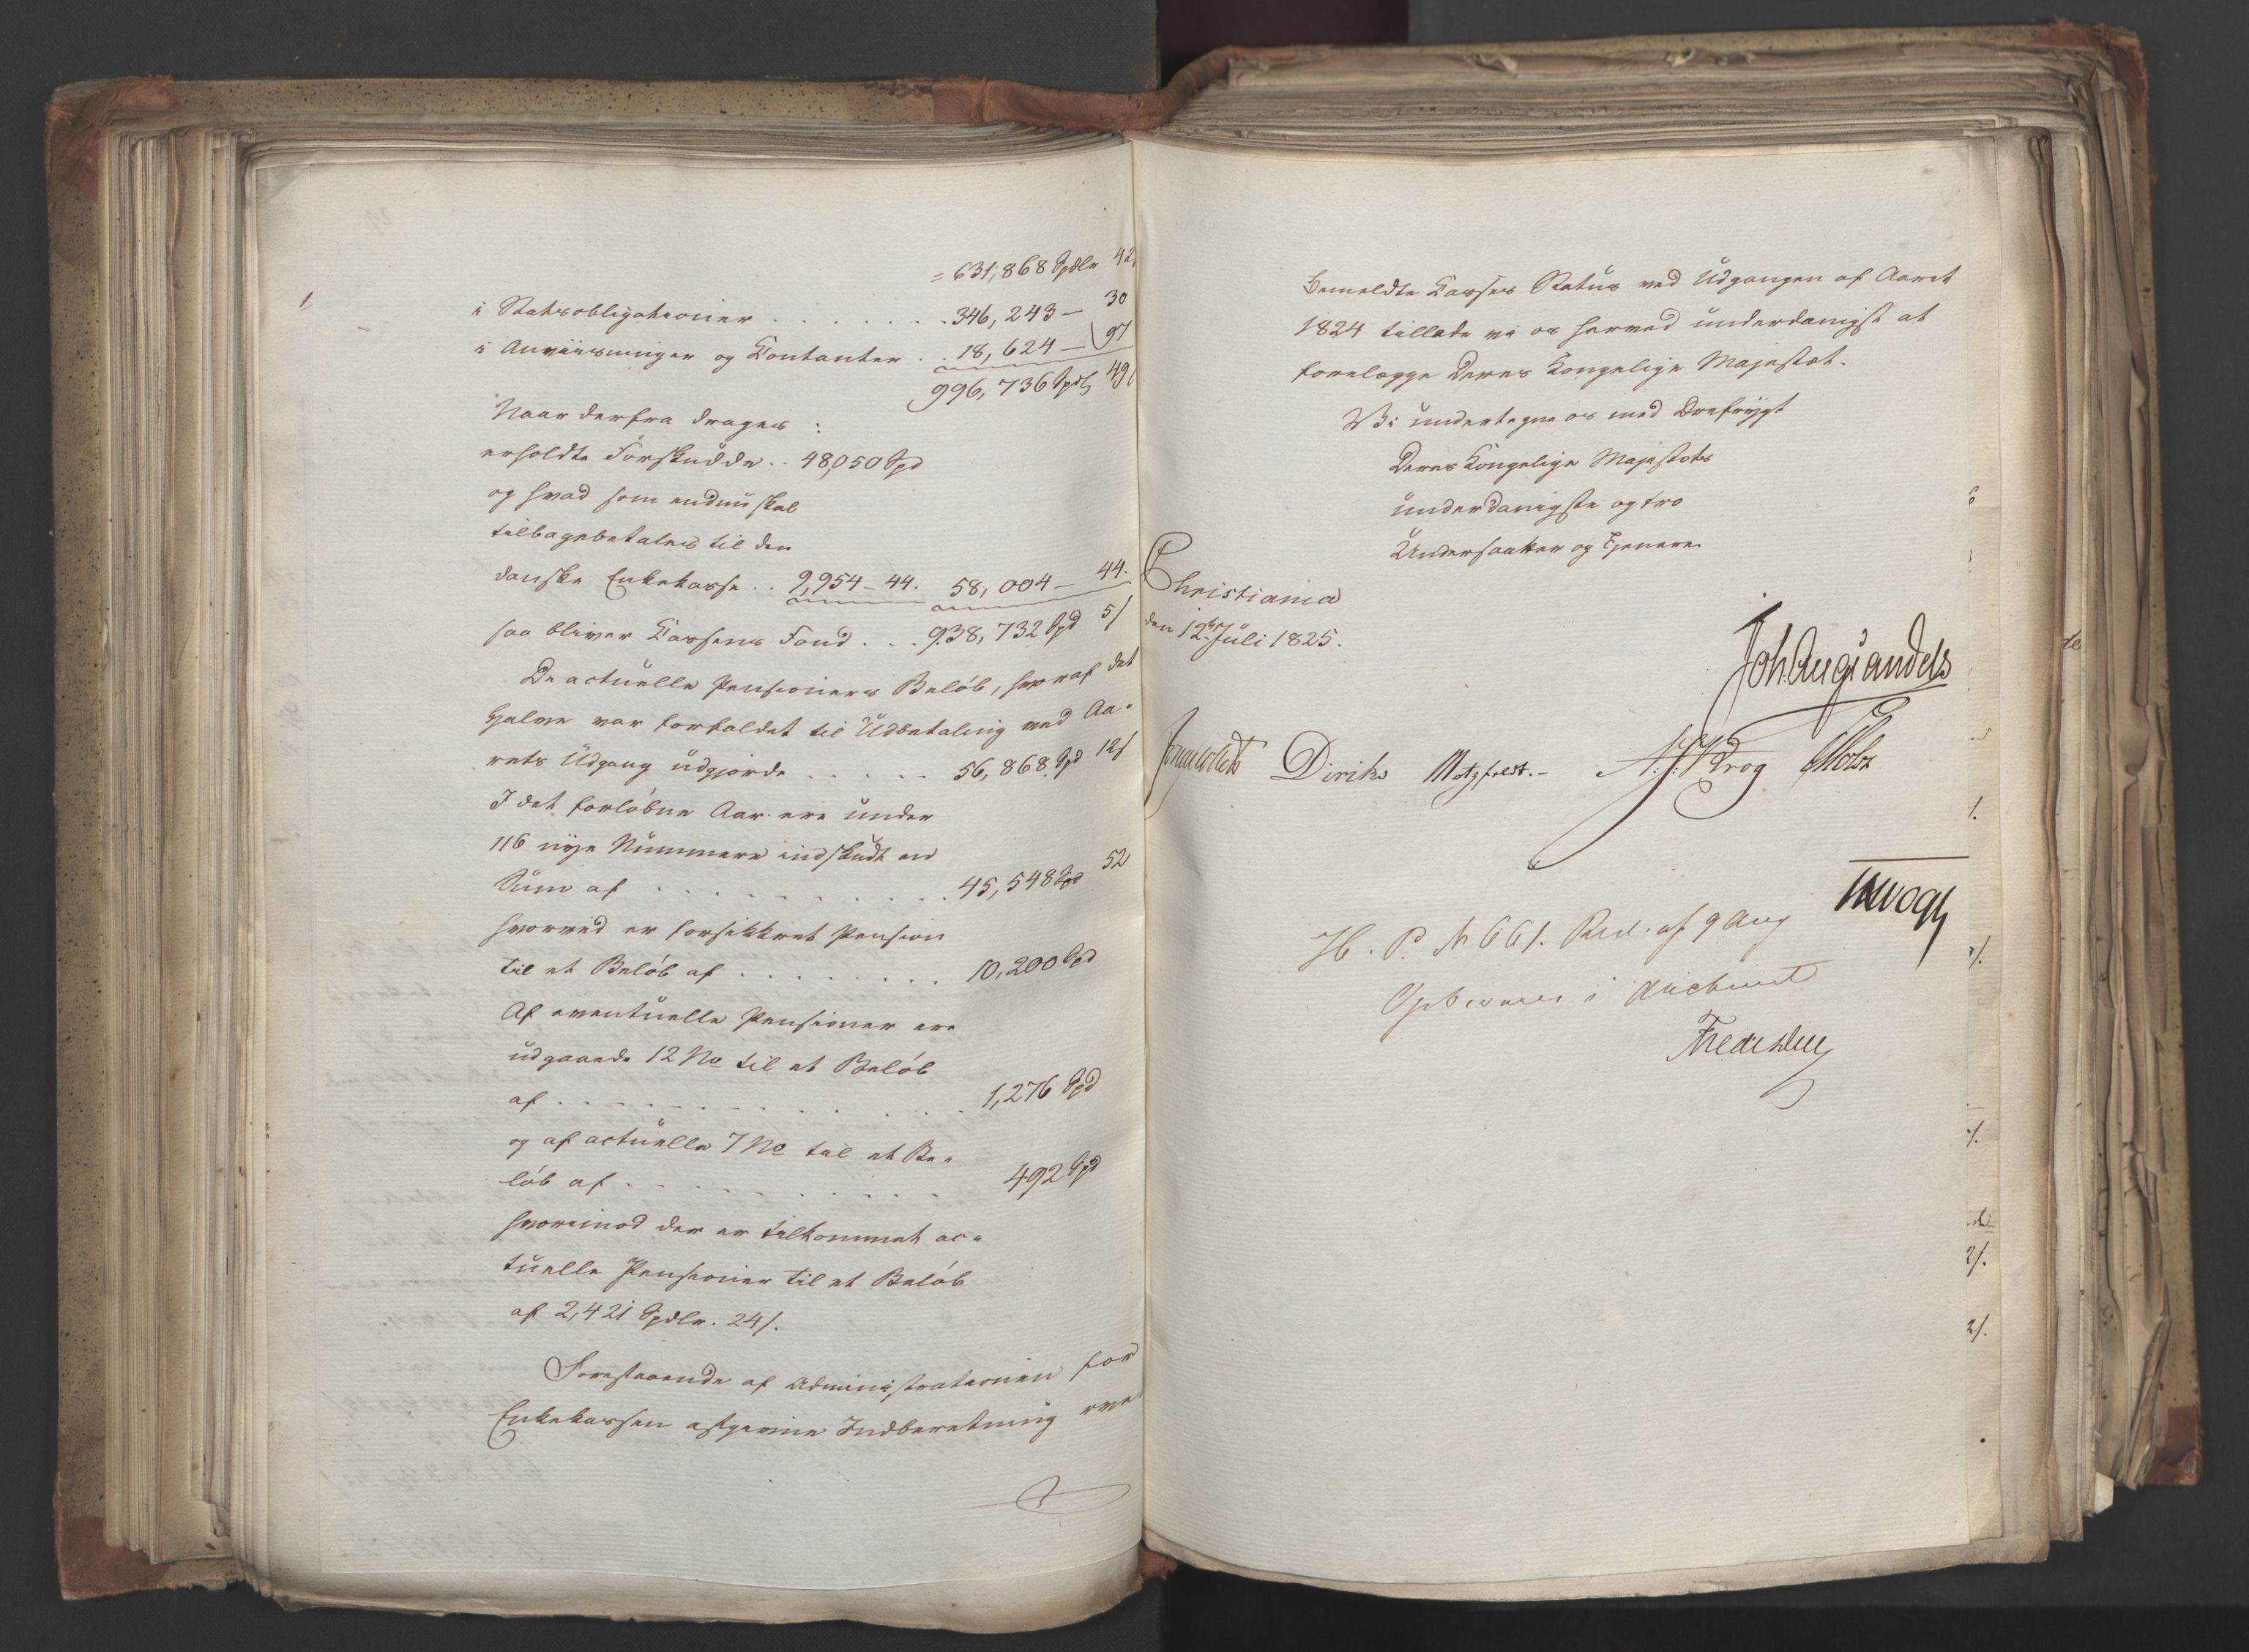 = 631,868 Spdlr 42
i Statsobligationer . . . . . . . 346,243 — 30
i Anviisninger og Contanter . . 18,624 — 97
996,736 Spdl 49
Naar derfra drages :
erholdte Forskudde . . 48,050 Spd
og hvad som endnu skal
tilbagebetales til den
danske Enkekasse . . 9,954 — 44. 58,004 — 44.
saa bliver Cassens Fond . . . 938,732 Spd 5/
De actuelle Pensioners Beløb, hvoraf det
halve var forfaldet til Udbetaling ved Aa-
rets Udgang udgjorde . . . . . 56,868 Spd 12/
I det forløbne Aar ere under
116 nye Nummere indskudt en
Sum af . . . . . . . . . 45,548 Spd 52
hvorved er forsikkret Pension
til et Beløb af . . . . . . . 10,200 Spd
Af eventuelle Pensioner ere
udgaaede 12 No til et Beløb
af . . . . . . . . . . . . 1,276 Spd
og af actuelle 7 No til et Be-
løb af . . . . . . . . . . 492 Spd
hvorimod der er tilkommet ac-
tuelle Pensioner til et Beløb
af 2,421 Spdlr. 24/.
Forestaaende af Administrationen for
Enkekassen afgivne Indberetning om
bemeldte Casses Status ved Udgangen af Aaret
1824 tillade vi os herved underdanigst at
forelægge Deres Kongelige Majestæt.
Vi undertegne os med Ærefrygt
Deres Kongelige Majestæts
underdanigste og tro
Undersaatter og Tjenere.
Christiania
den 12te Juli 1825.
Joh. Aug. Sandels
Sommerhielm Diriks Motzfeldt. — A. J. Krog Holst
JHVogt
H. P. No 661. Res. af 9 Aug
Opbevares i Archivet
Fredr Due